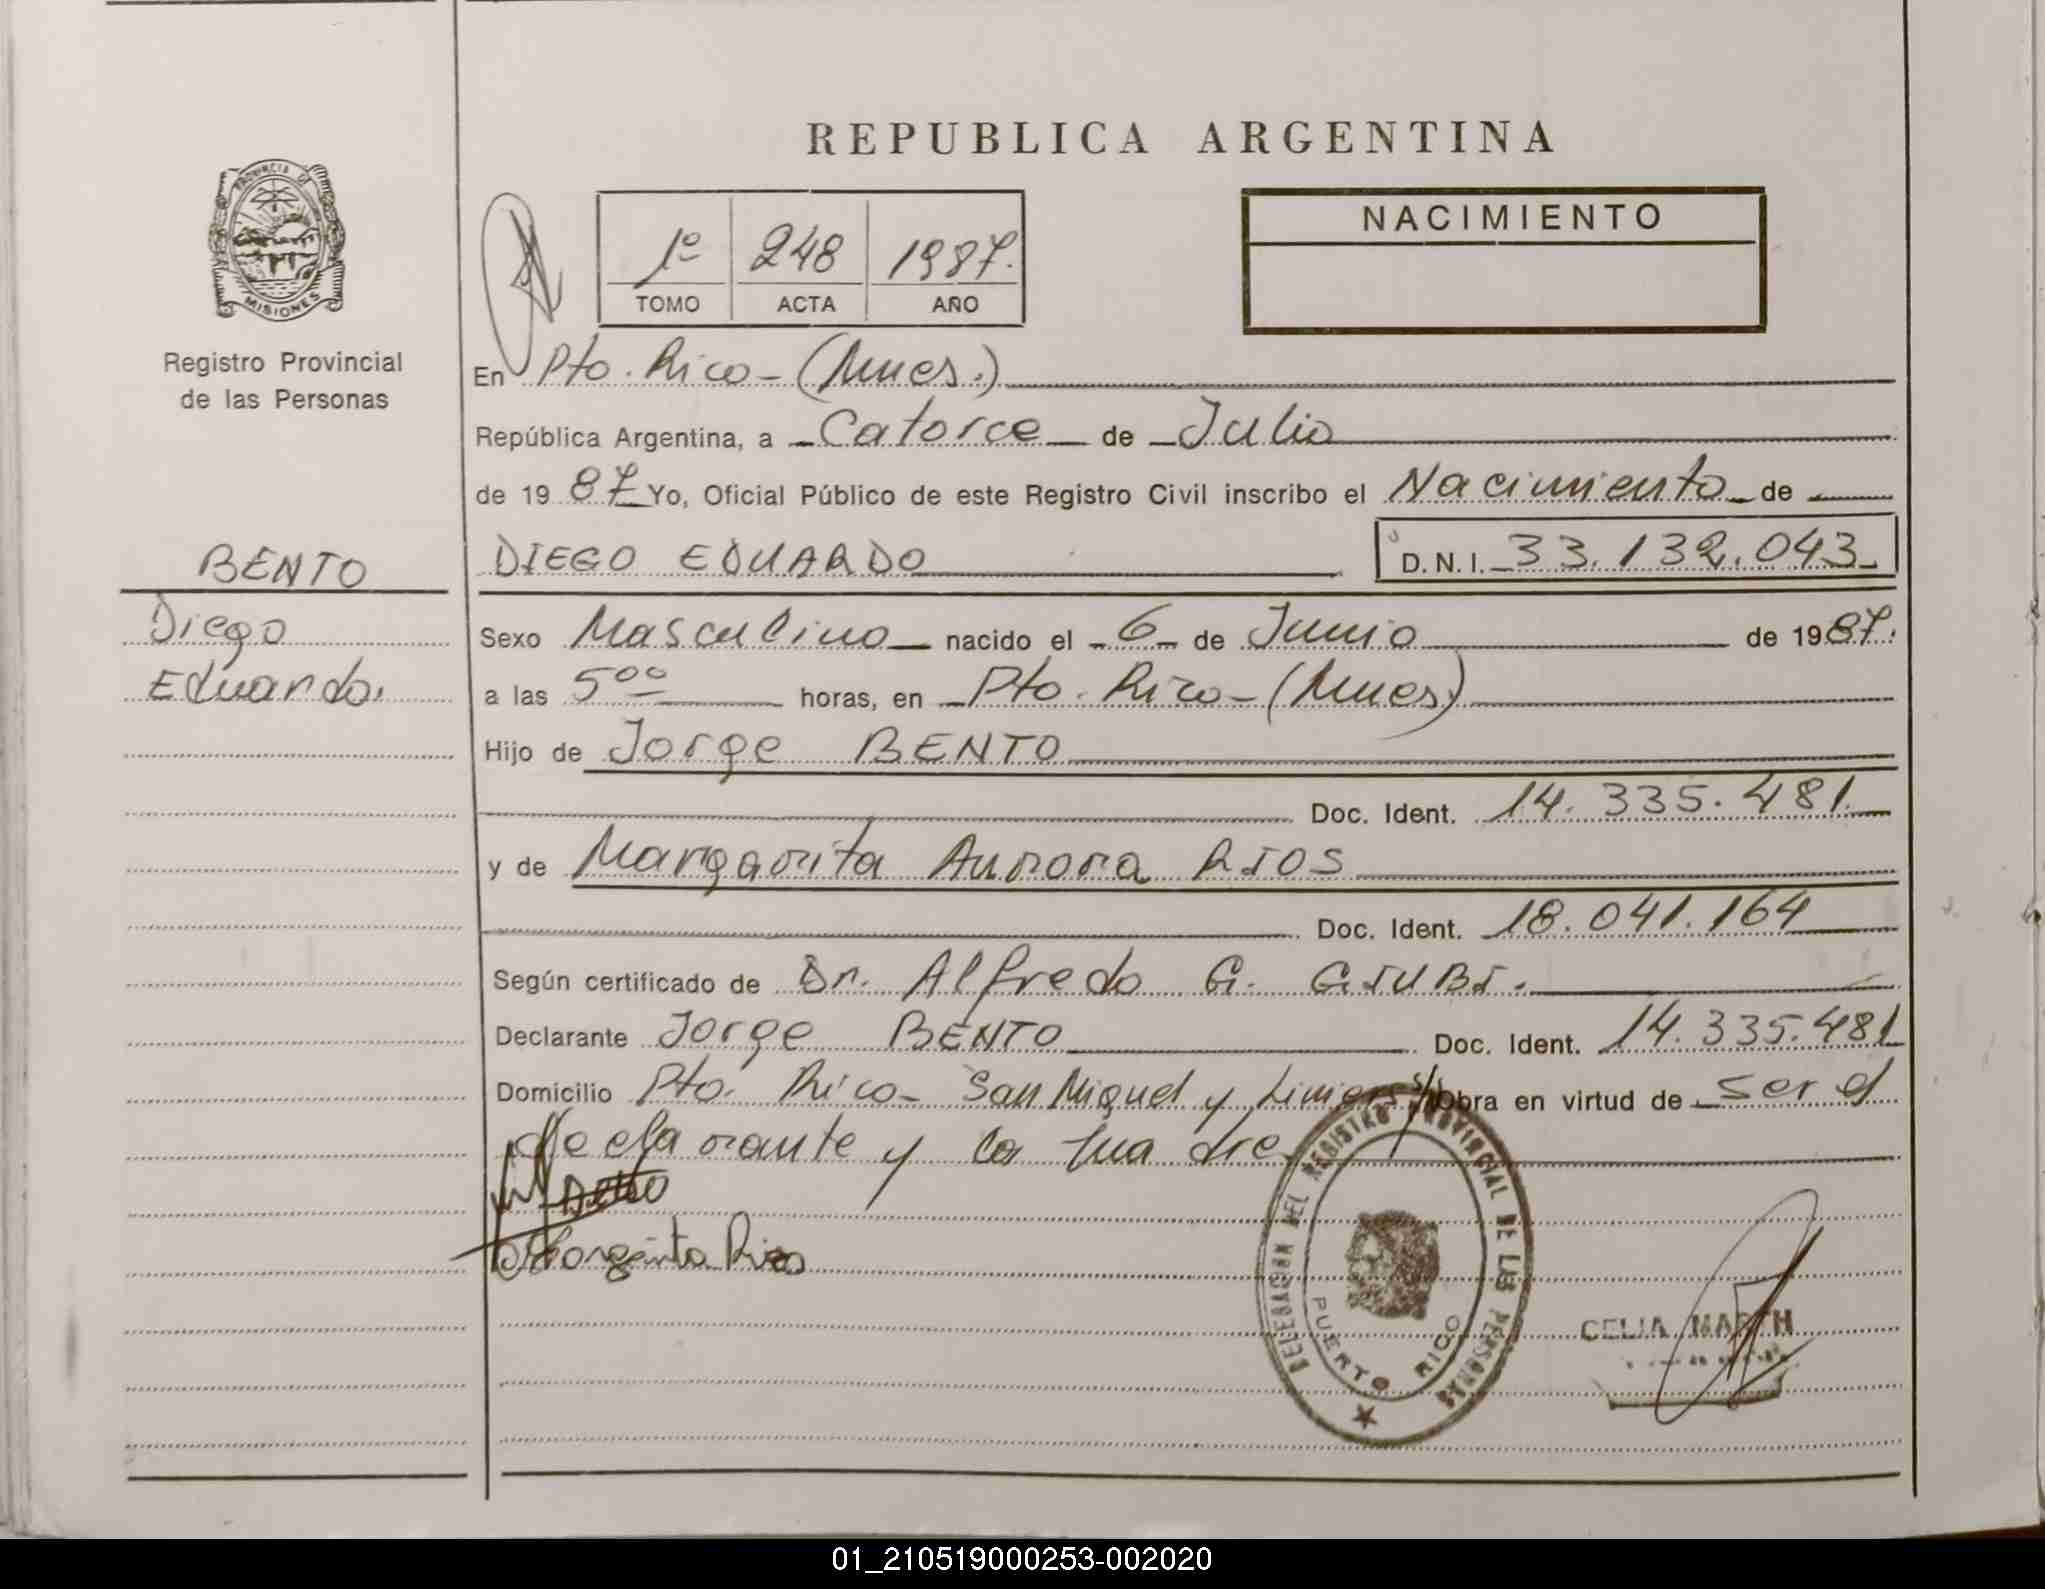 REPUBLICA ARGENTINA
PROVINCIA DE
MISIONES
Registro Provincial
de las Personas
1º 248 1987.
TOMO ACTA AÑO
NACIMIENTO
En Pto. Rico - (Mnes.)
República Argentina, a Catorce de Julio
de 1987 Yo, Oficial Público de este Registro Civil inscribo el Nacimiento de
BENTO
DIEGO EDUARDO D.N.I. 33.132.043
Diego
Eduardo.
Sexo Masculino nacido el 6 de Junio de 1987.
a las 5⁰⁰ horas, en Pto. Rico - (Mnes)
Hijo de Jorge BENTO
Doc. Ident. 14.335.481
y de Margarita Aurora RIOS
Doc. Ident. 18.041.164
Según certificado de Dr. Alfredo G. GIUBI.
Declarante Jorge BENTO Doc. Ident. 14.335.481
Domicilio Pto. Rico - San Miguel y Liniers s/n Obra en virtud de ser el
declarante y la madre
Margarita Rios
DELEGACION DEL REGISTRO PROVINCIAL DE LAS PERSONAS
PUERTO RICO
CELIA
01_210519000253-002020